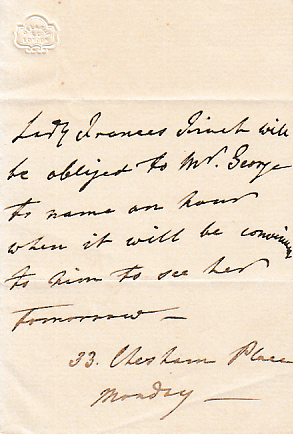 Lady Frances Finch will
be obliged to Mr. George
to name an hour
when it will be convinient
to him to see her
tomorrow —
33. Chesham Place
Monday —